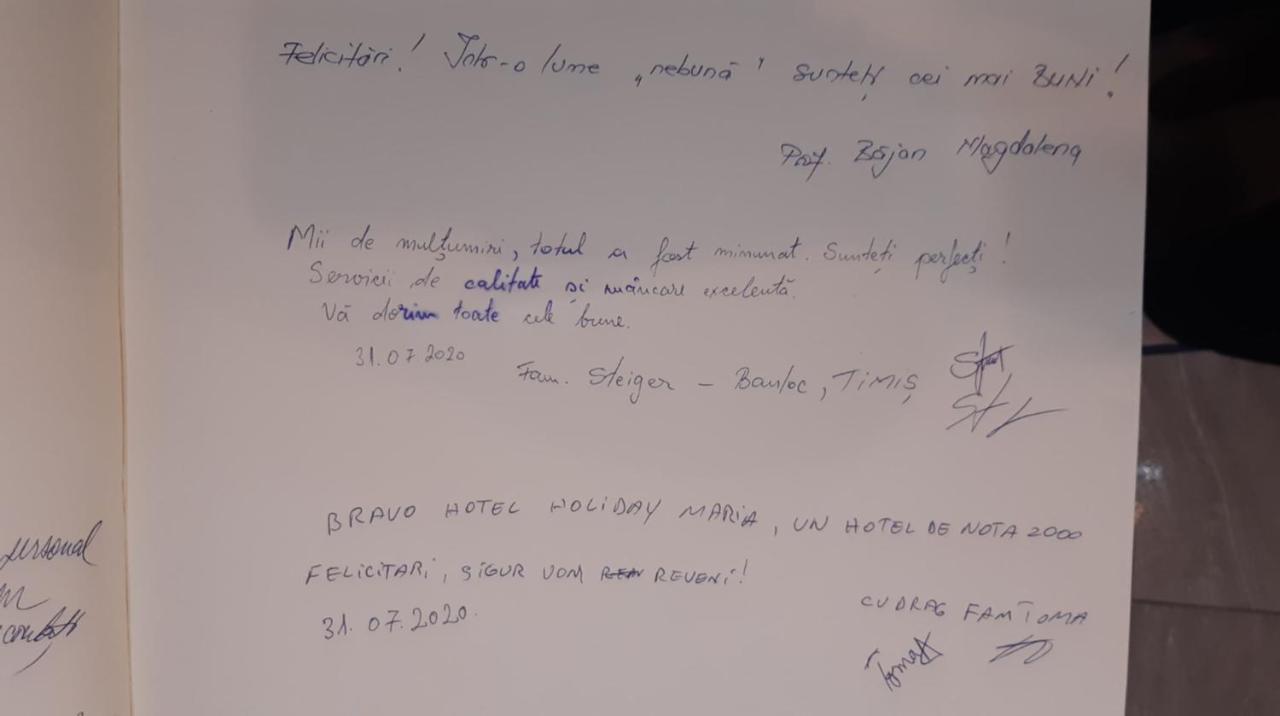 personal
Felicitări! Într-o lume „nebună” sunteți cei mai BUNI!
Prof. Băjan Magdalena
Mii de mulțumiri, totul a fost minunat. Sunteți perfecți!
Servicii de calitate și mâncare excelentă.
Vă dorim toate cele bune.
31.07 2020
Fam. Steiger – Banloc, TIMIȘ
BRAVO HOTEL HOLIDAY MARIA, UN HOTEL DE NOTA 2000
FELICITARI, SIGUR VOM REVENI!
31.07.2020.
CU DRAG FAM TOMA
Toma